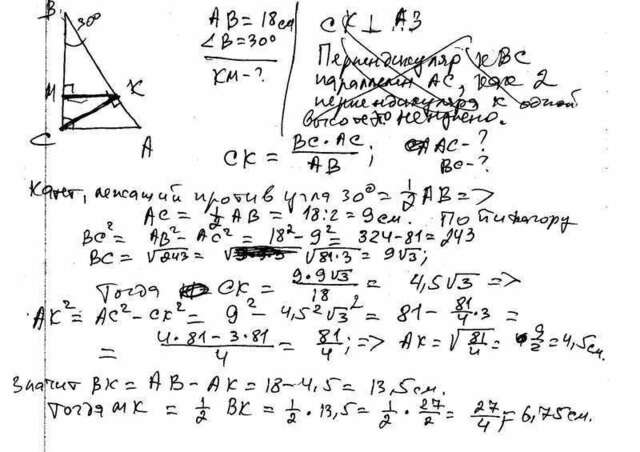 B
30°
M
K
C
A
AB = 18 см
∠B = 30°
KM - ?
CK ⊥ AB
Перпендикуляр к BC
параллелен AC, как 2
перпендикуляра к одной
CK = BC · AC / AB ; AC - ?
BC - ?
Катет, лежащий против угла 30° = 1/2 AB =>
AC = 1/2 AB = 18:2 = 9 см. По Пифагору
BC² = AB² - AC² = 18² - 9² = 324 - 81 = 243
BC = √243 = √81·3 = 9√3;
Тогда CK = 9·9√3 / 18 = 4,5√3 =>
AK² = AC² - CK² = 9² - 4,5²√3² = 81 - 81/4 · 3 =
= 4·81 - 3·81 / 4 = 81/4 ; => AK = √81/4 = 9/2 = 4,5 см.
Значит BK = AB - AK = 18 - 4,5 = 13,5 см.
Тогда MK = 1/2 BK = 1/2 · 13,5 = 1/2 · 27/2 = 27/4 = 6,75 см.